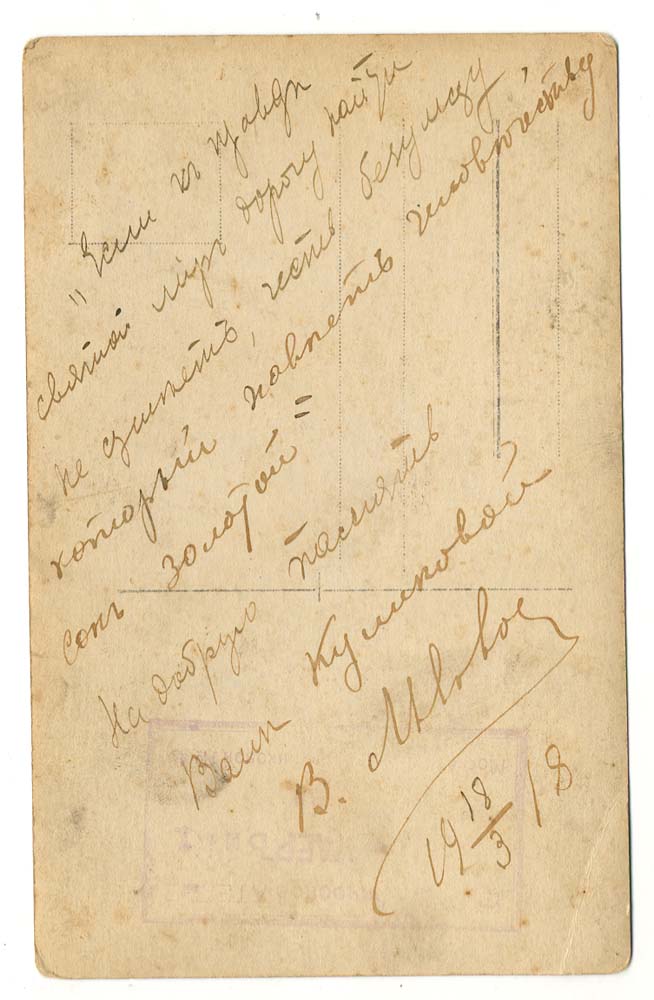 "Если къ правдѣ
святой міръ дорогу найти
не съумѣетъ, честь безумцу,
который навѣетъ человѣчеству
сонъ золотой"
На добрую память
Вали Куликовой
В.
19 18/3 18